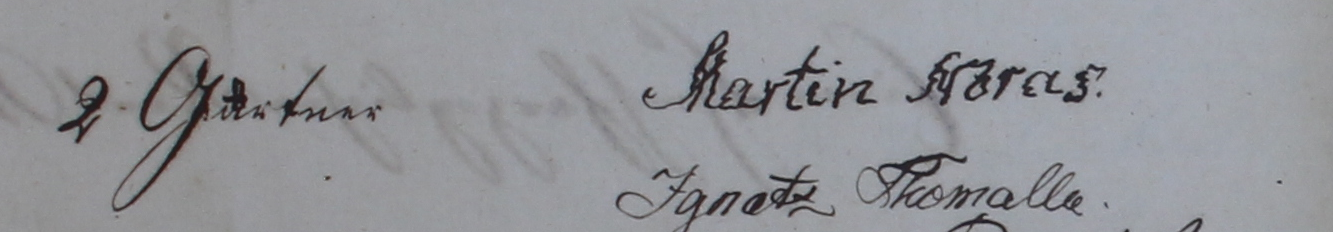 2 Gärtner Martin
Ignatz Thomalla.